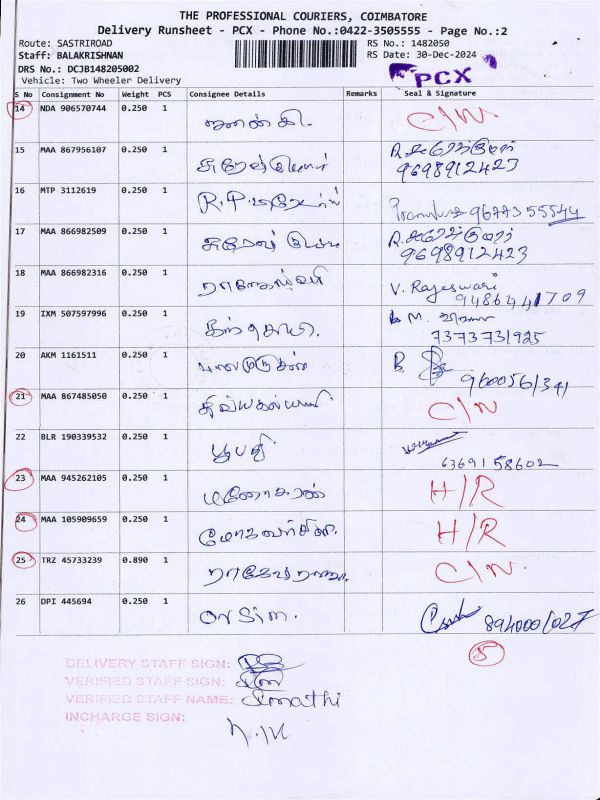 THE PROFESSIONAL COURIERS, COIMBATORE
Delivery Runsheet - PCX - Phone No.:0422-3505555 - Page No.:2
Route: SASTRIROAD RS No.: 1482050
Staff: BALAKRISHNAN RS Date: 30-Dec-2024
DRS No.: DCJB148205002
Vehicle: Two Wheeler Delivery
PCX
S No Consignment No Weight PCS Consignee Details Remarks Seal & Signature
14 NDA 906570744 0.250 1 ஜானகி. C/N.
15 MAA 867956107 0.250 1 சுரேஷ்குமார் R.சுரேஷ்குமார்
9698912423
16 MTP 3112619 0.250 1 R.P.
9677355544
17 MAA 866982509 0.250 1 R.சுரேஷ்குமார்
9698912423
18 MAA 866982316 0.250 1 ராஜேஸ்வரி V. Rajeswari
9486441709
19 IXM 507597996 0.250 1 M.
7373731925
20 AKM 1161511 0.250 1 பாலமுருகன் B
9600561341
21 MAA 867485050 0.250 1 C/N
22 BLR 190339532 0.250 1 பூபதி
6369158602
23 MAA 945262105 0.250 1 மனோகரன் H/R
24 MAA 105909659 0.250 1 H/R
25 TRZ 45733239 0.890 1 C/N.
26 DPI 445694 0.250 1
8940001027
5
DELIVERY STAFF SIGN:
VERIFIED STAFF SIGN:
VERIFIED STAFF NAME:
INCHARGE SIGN: